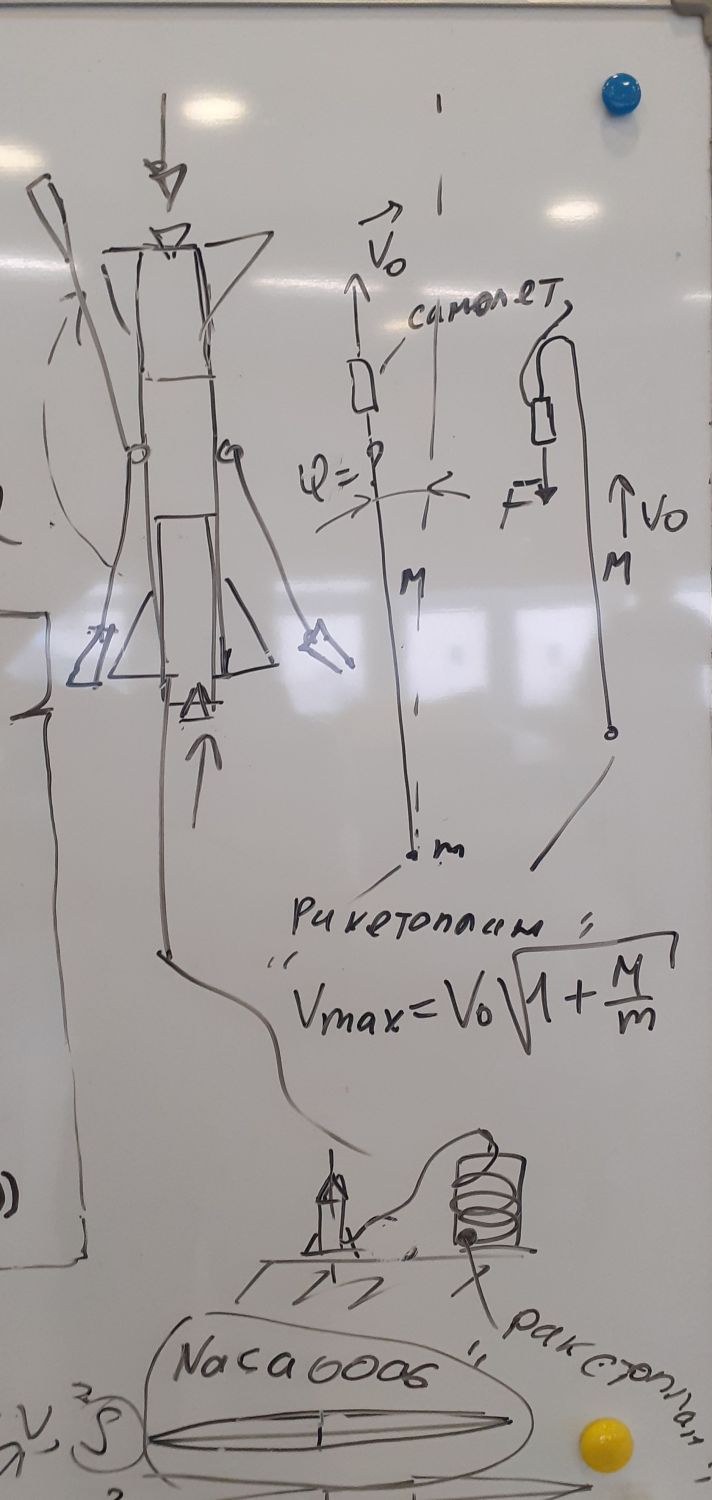 V₀
самолет
φ=?
F
V₀
M
M
m
"Ракетоплан"
Vmax = V₀√(1 + M/m)
"Ракетоплан"
Naca0006
V²S